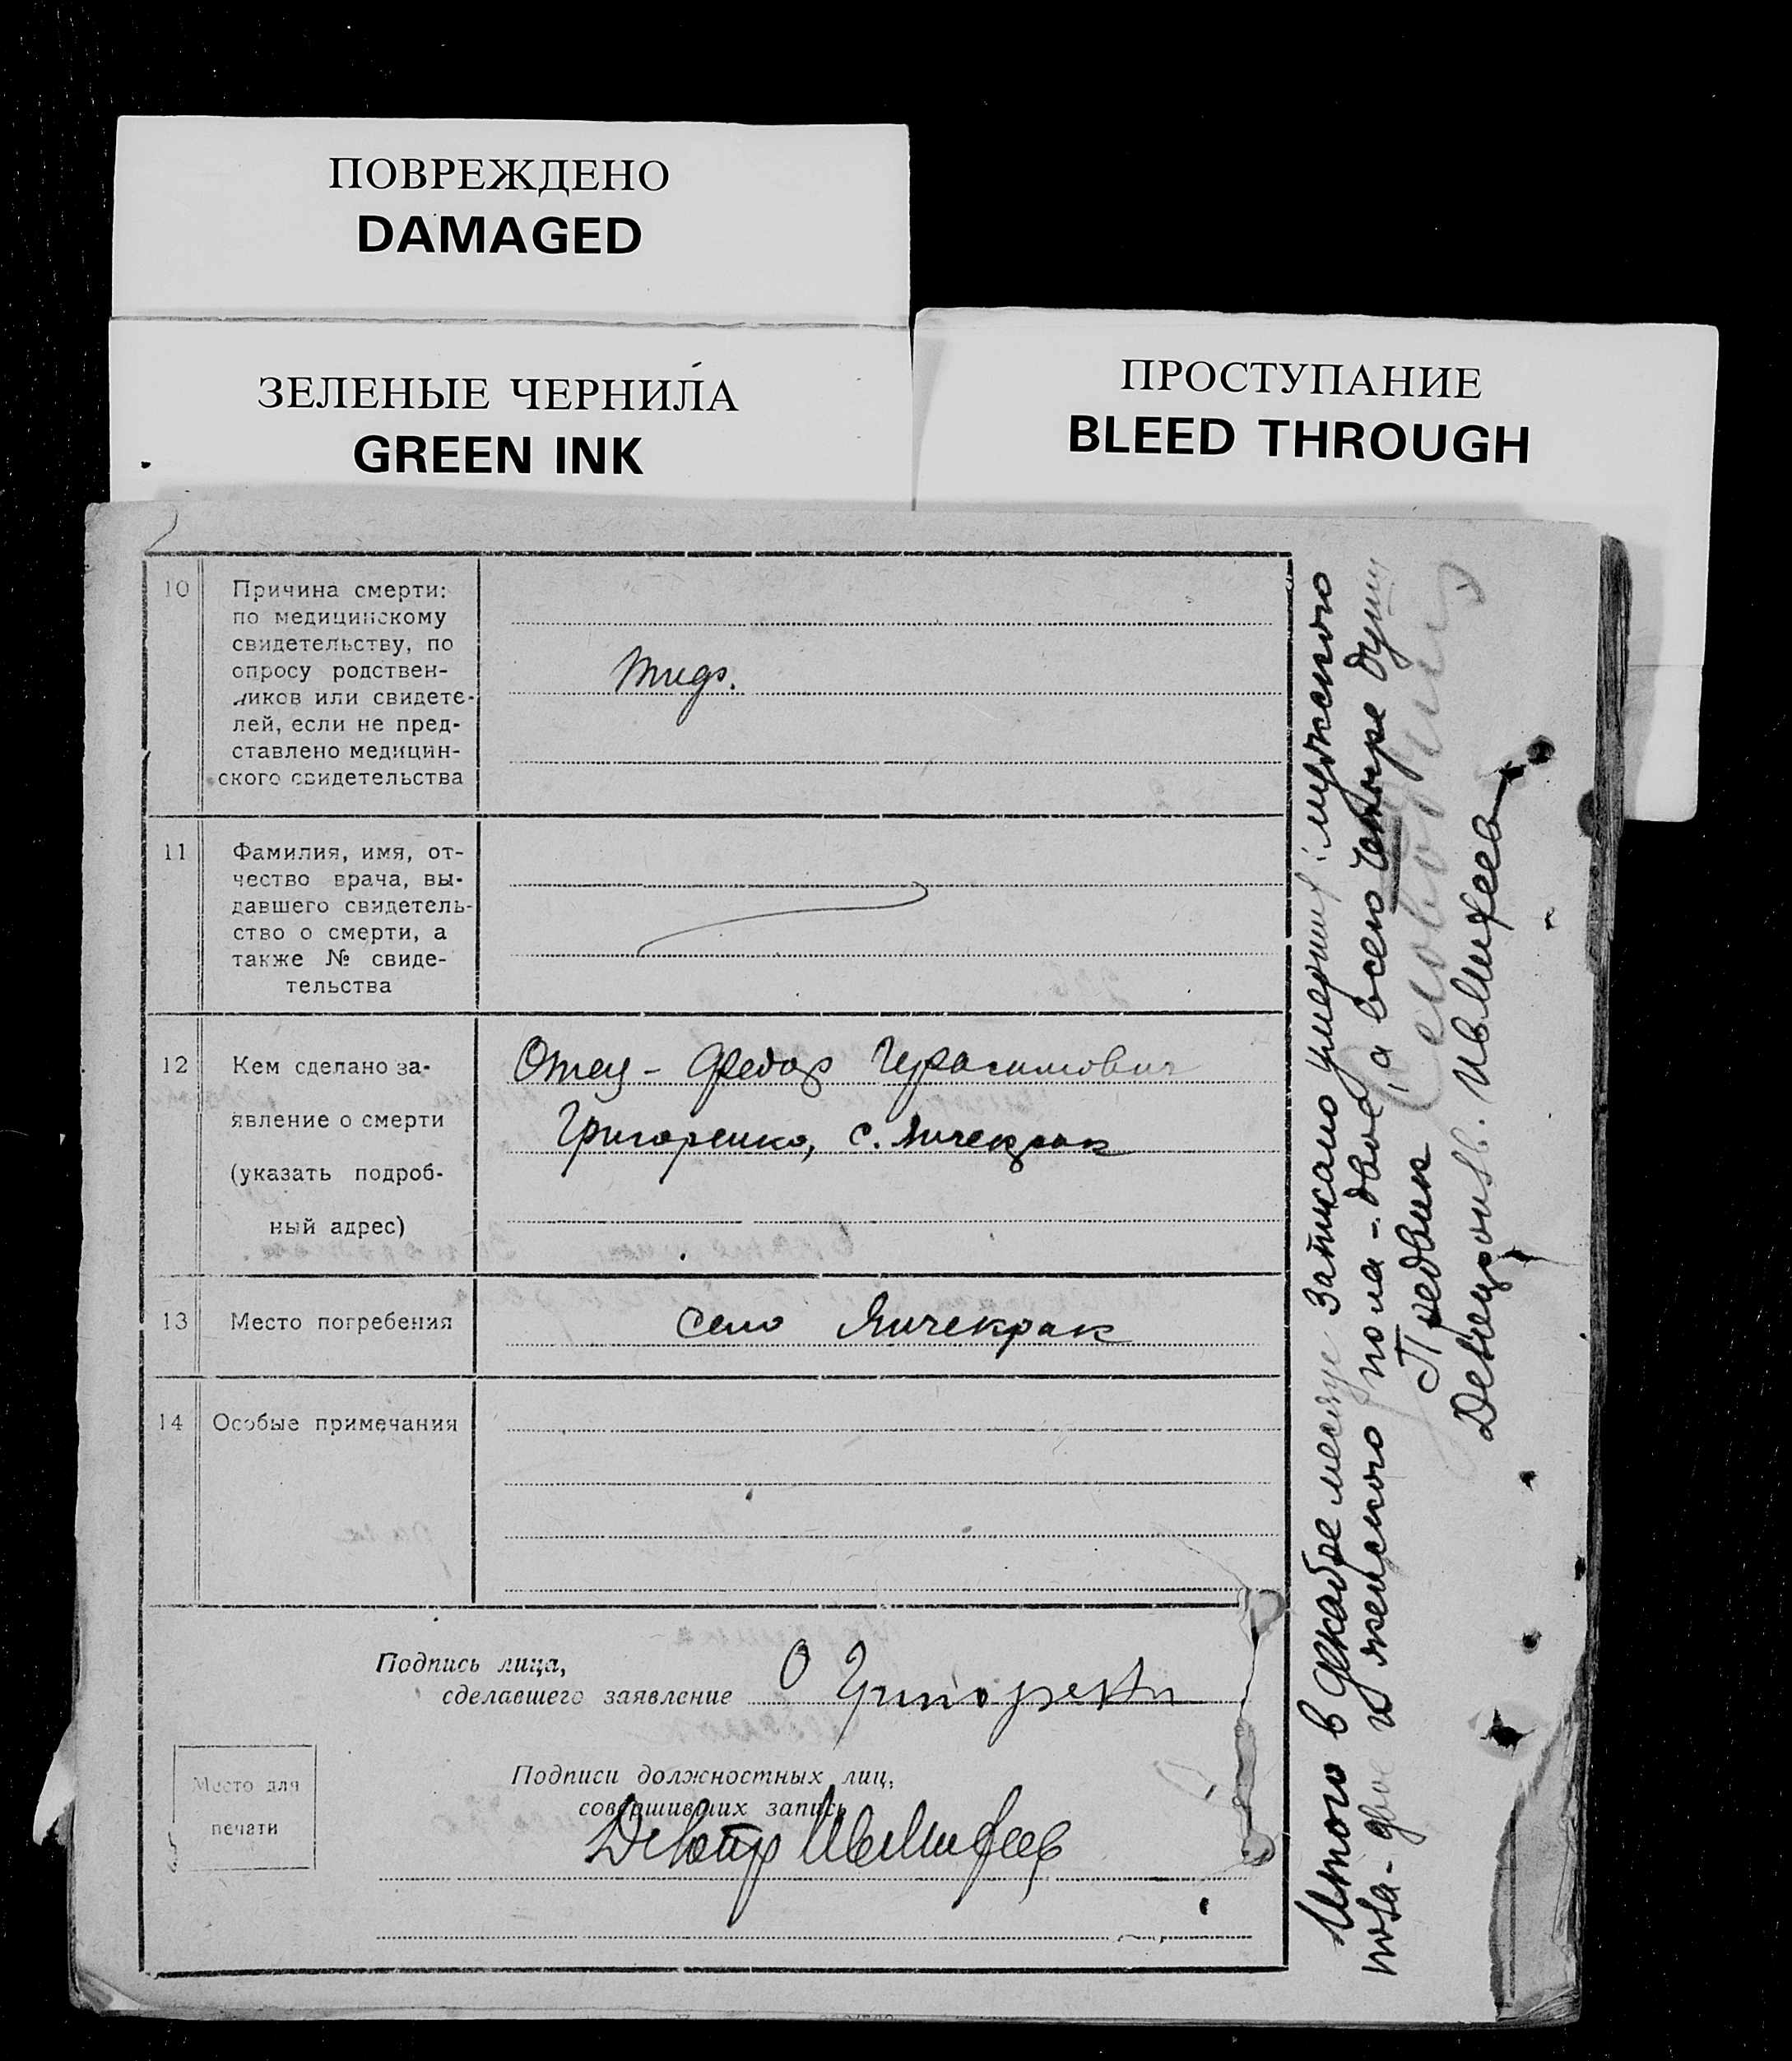 ПОВРЕЖДЕНО
DAMAGED
ЗЕЛЕНЫЕ ЧЕРНИЛА
GREEN INK
ПРОСТУПАНИЕ
BLEED THROUGH
10
Причина смерти:
по медицинскому
свидетельству, по
опросу родствен-
ников или свидете-
лей, если не пред-
ставлено медицин-
ского свидетельства
11
Фамилия, имя, от-
чество врача, вы-
давшего свидетель-
ство о смерти, а
также № свиде-
тельства
12
Кем сделано за-
явление о смерти
(указать подроб-
ный адрес)
Отец - Федор Герасимович
Григоренко, с. Янчекрак
13
Место погребения
село Янчекрак
14
Особые примечания
Подпись лица,
сделавшего заявление
Подписи должностных лиц,
совершивших запись
Место для
печати
Итого в декабре месяце записано умерших: мужского
пола - двое и женского пола - двое, а всего четыре души